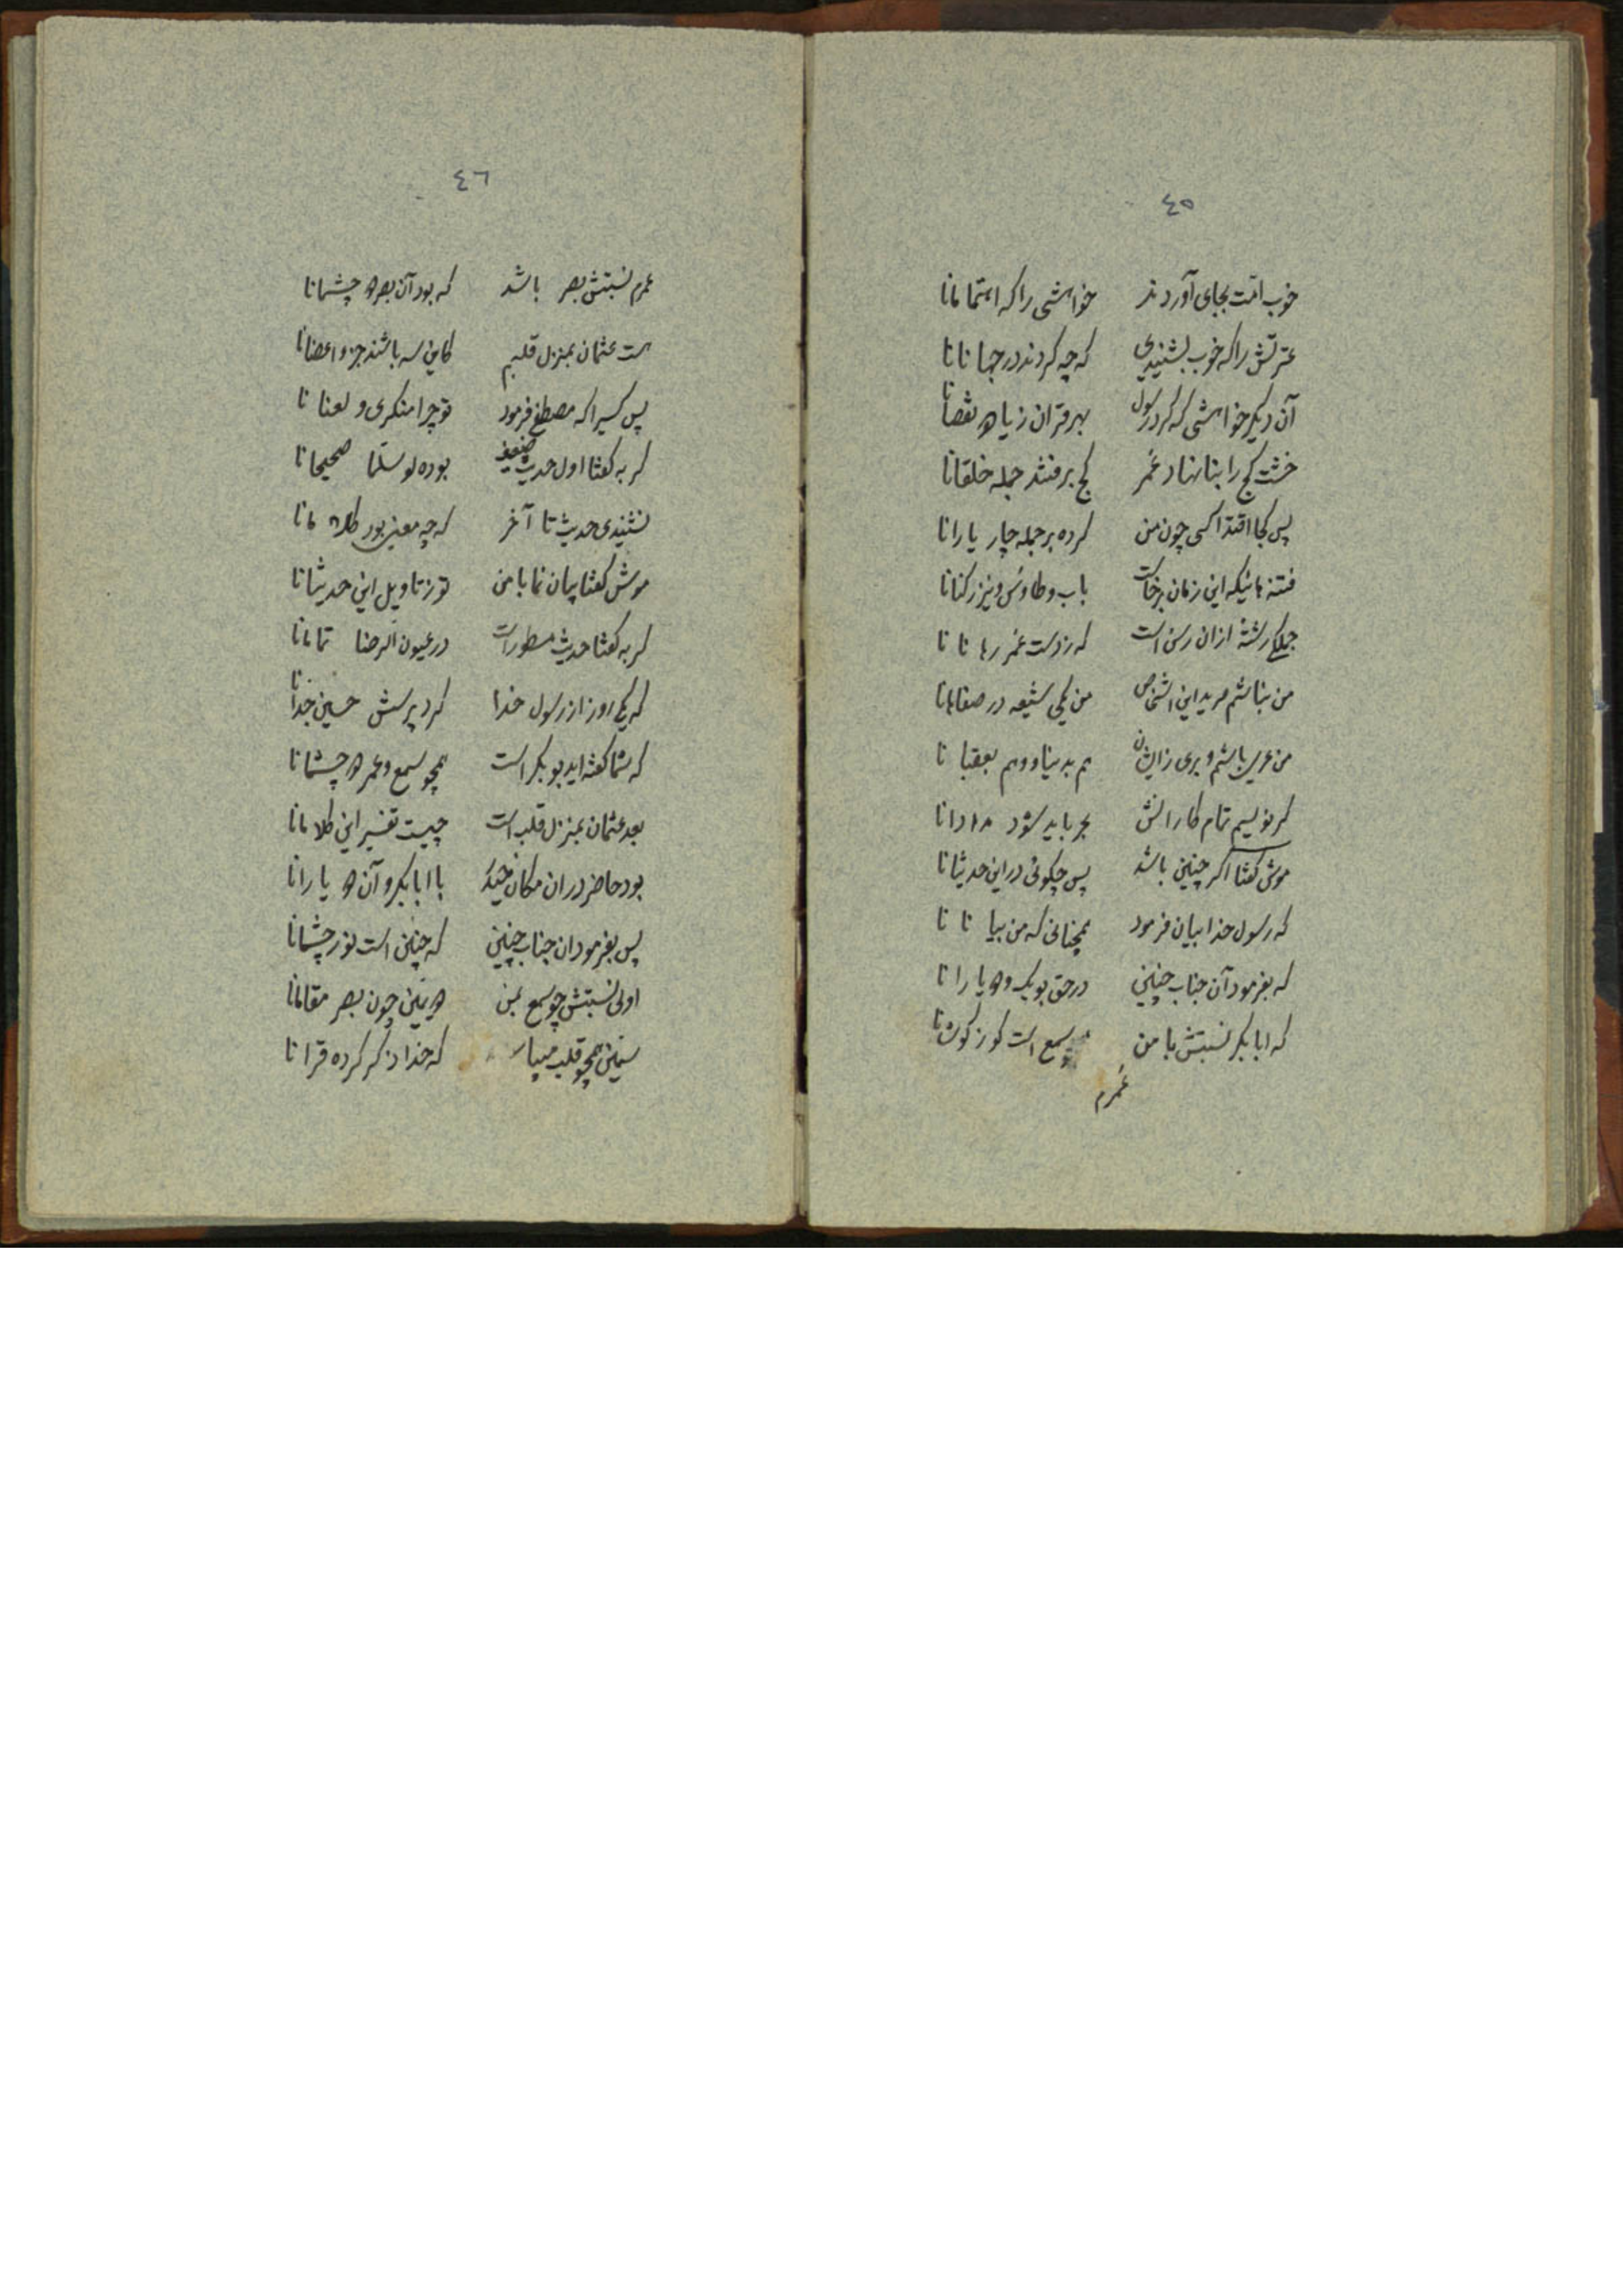 ٤٥
خوب امّت بجای آوردند خواهشی را که اهتمامانا
عترتش را که خوب بشنیدی که چه کردند در جهانانا
آن دیگر خواهشی که کرد رسول بهر قران زیاد نقصانا
خشت کج را بنا نهاد عُمر کج برفتند جمله خلقانا
پس کجا اقتدا کسی چون من کرده بر جمله چار یارانا
فتنه هائیکه این زمان برخاست باب و طاوس و نیز رکنانا
جملگی رشتهٔ ازان رسن است که ز دست عُمر رهانانا
من نباشم مرید این اشخاص من یکی شیعه در صفاهانا
من عری باشم و بری زایشان هم بدنیا و هم بعقبانا
گر نویسم تمام کارانش بحر باید شود مدادانا
موش گفتا اگر چنین باشد پس چگوئی در این حدیثانا
که رسول خدا بیان فرمود همچنانی که من بیانانا
که بفرمود آن جناب چنین در حق بوبک و دو یارانا
که ابابکر نسبتش با من چو سمع است کورز گوشانا
عُمرم
٤٦
عمرم نسبتش بصر باشد که بود آن بصر دو چشمانا
هست عثمان بمنزل قلبم کاین سه باشند جزو اعضانا
پس کسیرا که مصطفی فرمود تو چرا منکری و لعنانا
گربه گفتا اول حدیث ضعیف بوده لو سلّما صحیحانا
نشنیدی حدیث تا آخر که چه معنی بود کلامانا
موش گفتا بیان نما با من تو ز تاویل این حدیثانا
گربه گفتا حدیث مسطور است در عیون الرضا تمامانا
که یکی روز از رسول خدا کرد پرسش حسین جدانا
که شما گفته اید بوبکر است همچو سمع و عمر دو چشمانا
بعد عثمان بمنزل قلب است چیست تفسیر این کلامانا
بود حاضر دران مکان حیدر با ابابکر و آن دو یارانا
پس بفرمود ان جناب چنین که چنین است نور چشمانا
اولی نسبتش چو سمع بمن دویمین چون بصر مقالانا
سیمین همچو قلب میباشد که خدا ذکر کرده قرانا